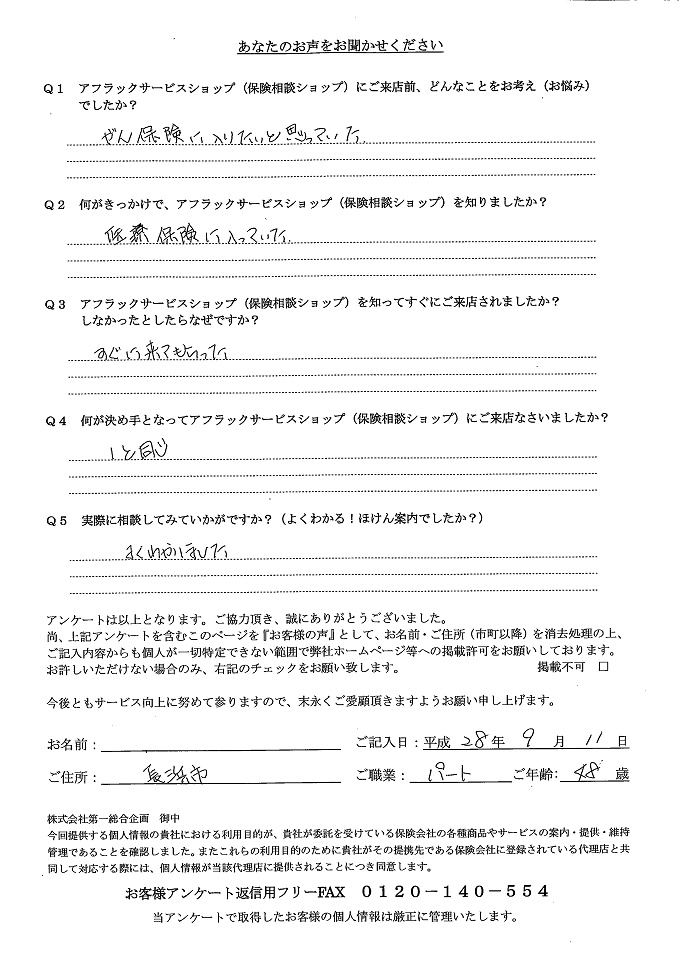 あなたのお声をお聞かせください
Q1 アフラックサービスショップ（保険相談ショップ）にご来店前、どんなことをお考え（お悩み）
でしたか？
がん保険に入りたいと思っていた
Q2 何がきっかけで、アフラックサービスショップ（保険相談ショップ）を知りましたか？
医療保険に入っていた
Q3 アフラックサービスショップ（保険相談ショップ）を知ってすぐにご来店されましたか？
しなかったとしたらなぜですか？
すぐに来てもらった
Q4 何が決め手となってアフラックサービスショップ（保険相談ショップ）にご来店なさいましたか？
1と同じ
Q5 実際に相談してみていかがですか？（よくわかる！ほけん案内でしたか？）
アンケートは以上となります。ご協力頂き、誠にありがとうございました。
尚、上記アンケートを含むこのページを『お客様の声』として、お名前・ご住所（市町以降）を消去処理の上、
ご記入内容からも個人が一切特定できない範囲で弊社ホームページ等への掲載許可をお願いしております。
お許しいただけない場合のみ、右記のチェックをお願い致します。 掲載不可 □
今後ともサービス向上に努めて参りますので、末永くご愛顧頂きますようお願い申し上げます。
お名前： ご記入日：平成 28 年 9 月 11 日
ご住所： 長浜市 ご職業： パート ご年齢： 48 歳
株式会社第一総合企画 御中
今回提供する個人情報の貴社における利用目的が、貴社が委託を受けている保険会社の各種商品やサービスの案内・提供・維持
管理であることを確認しました。またこれらの利用目的のために貴社がその提携先である保険会社に登録されている代理店と共
同して対応する際には、個人情報が当該代理店に提供されることにつき同意します。
お客様アンケート返信用フリーFAX 0120－140－554
当アンケートで取得したお客様の個人情報は厳正に管理いたします。